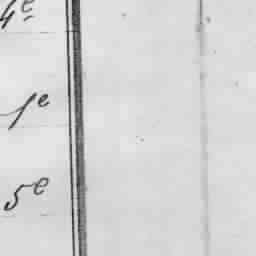 4e
1e
5e